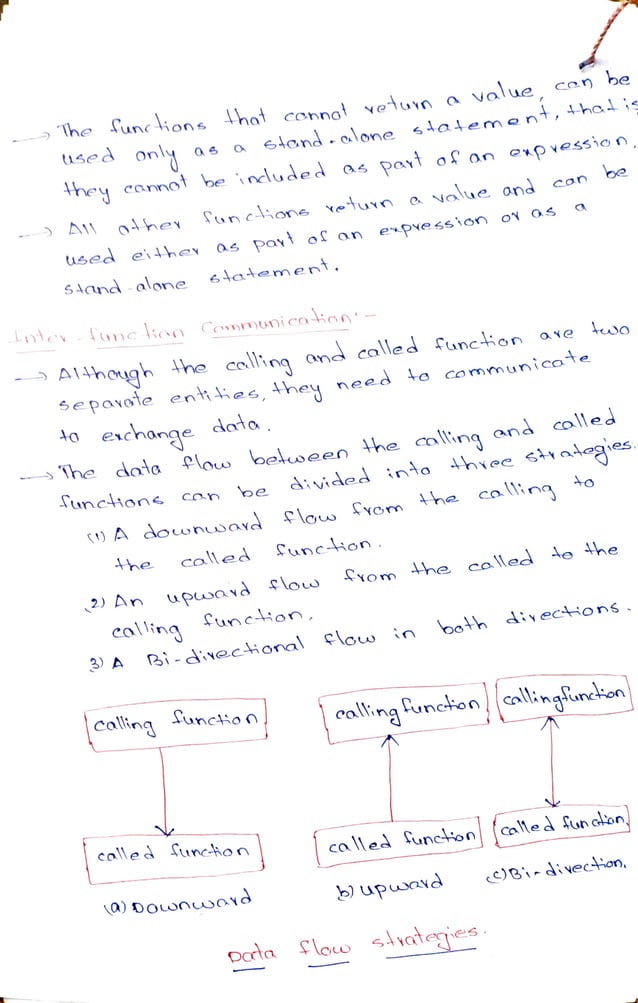 → The functions that cannot return a value, can be
used only as a stand-alone statement, that is
they cannot be included as part of an expression.
→ All other functions return a value and can be
used either as part of an expression or as a
stand-alone statement.
Inter-function Communication:-
→ Although the calling and called function are two
separate entities, they need to communicate
to exchange data.
→ The data flow between the calling and called
functions can be divided into three strategies.
(1) A downward flow from the calling to
the called function.
2) An upward flow from the called to the
calling function.
3) A Bi-directional flow in both directions.
calling function
calling function
calling function
called function
called function
called function.
(a) Downward
b) upward
(c) Bi-direction.
Data flow strategies.